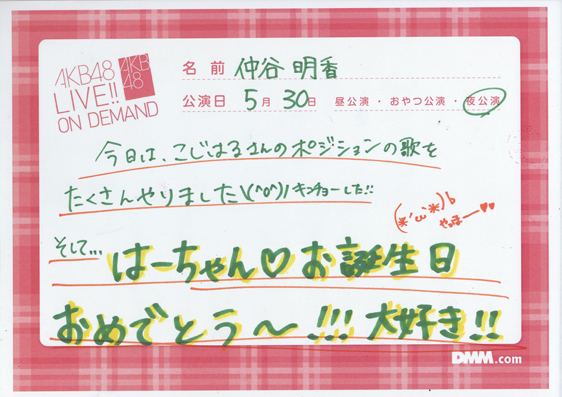 AKB48
LIVE!!
ON DEMAND
AKB
48
名前 仲谷 明香
公演日 5月 30日 昼公演・おやつ公演・夜公演
今日は、こじはるさんのポジションの歌を
たくさんやりました\(^o^)/キンチョーした!!
(*'ω'*)b
やっほー♡♡
そして... はーちゃん♡お誕生日
おめでとう〜!!! 大好き!!
DMM.com